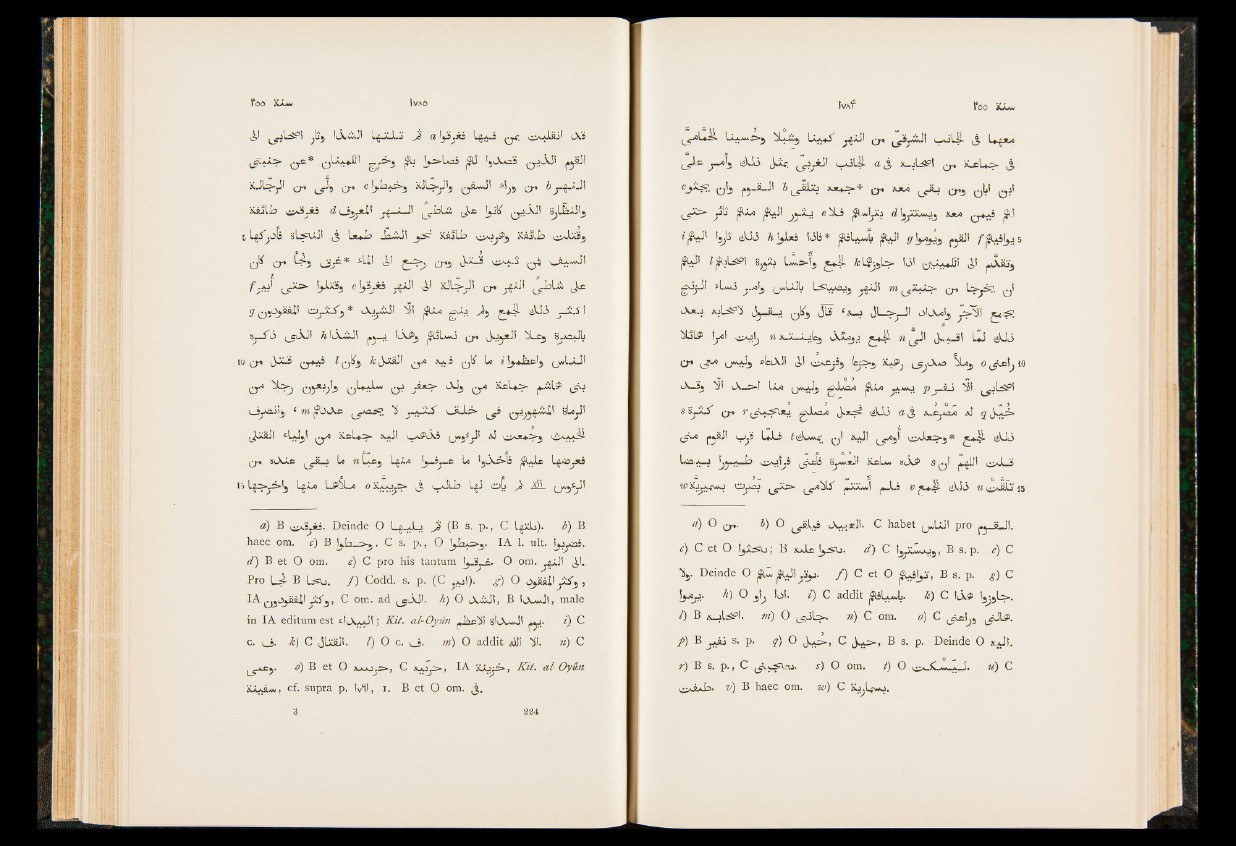 سنة ٢٥٥ ١٧٨٤
معها في الجانب الشرقىّ من النهر كمينا وشبلًا وحسينا الحمّامىّ
في جماعة من اصحابه a في الجانب الغربىّ بمثل ذلك وامر علىّ
ابن ابان ومن بقى معه من *جمعه بتلقّى b القوم وان يجثو c
لهم فيمن معه ويستتروا d بتراسهم فلا e يثور اليهم منهم ثائر حتى
5 يوافيهم f القوم ويوموا g اليهم بأسيافهم *فاذا فعلوا h ذلك ثاروا اليهم i
وتقدّم الى الكمينين اذا جاوزها k الجمع وأحسّا بثورة اصحابهم l اليهم
ان يخرجا من جنبتى m النهر ويصيحا بالناس وامر نساء الزنج
بجمع الآجرّ وامداد الرجال به، قال وكان يقول لاصحابه بعد
ذلك لما اقبل الىّ n الجمع يومئذ وعاينته n رايت امرا هائلا
10 راعنى o وملأ صدرى رهبة وجزعا وفزعت الى الدعاء وليس معى من
اصحابى الا نفر p يسير منهم مصلح وليس منا احد الا وقد
خُيّل q له مصرعه في a ذلك فجعل مصلح يُعجبنى r من كثرة s
ذلك الجمع *وجعلت أومى اليه ان يمسك t فلمّا قرب القوم منى
قلت اللهم ان s هذه ساعة العُسْرة فأعنّى فرايت طيورا بيضا
15 تلقّت u ذلك الجمع v فلم أستتمّ كلامى حتى بصرت بسميريّة w
a) O من. b) O العبيد فيلقى. C habet الناس pro القوم.
c) C et O يجثوا; B يجثوا عليه. d) C ويستتروا, B s. p. e) C
ولا. Deinde O يوثر اليهم منهم. f) C et O توافيهم, B s. p. g) C
يرموا. h) O اذا راو. i) C addit بأسيافهم. k) C جاوزوا هذا.
l) B اصحابه. m) O جانبى. n) C om. o) C وراعنى هالنى.
p) B نفير s. p. q) O خيل, C جيل, B s. p. Deinde O اليه.
r) B s. p., C يجيبنى. s) O om. t) O ليسكت. u) C
v) B haec om. w) C بسمارية.
سنة ٢٥٥ ١٧٨٥
قد انقلبت بمن فيها فغرقوا a ثم تلتها الشذا وثار اصحابى الى
القوم الذين قصدوا لهم فصاحوا بهم وخرج الكمينان *عن جنبتى
النهر b من وراء السفن والرجّالة وخبطوا c من ولّى من الرجّالة
والنظّارة الذين كانوا على شاطئ النهر المعروف d فغرقت طائفة
5 وقتلت طائفة وهربت طائفة نحو الشط طمعا في النجاة فأدركها
السيف فمن ثبت قُتل ومن رجع الى الماء *غرق ولجأ من كان
على شاطئ النهر من الرجّالة الى النهر فغرقوا e وقتلوا حتى أبير f
اكثر ذلك الجمع ولم ينج منهم الا الشريد *وكثر المفقودون g
بالبصرة وعلا العويل من نسائهم وهذا يوم الشذا h الذى ذكره
10 الناس وأعظموا i ما كان فيه من القتل k وكان l فيمن قُتل من
بنى هاشم جماعة من ولد جعفر بن سليمان واربعون رجلا من
الرماة المشهورين في خلق كثير لا يحصى عددهم m، وانصرف
الخبيث وجُمعت له الرءوس فذهب اليه جماعة من اولياء القتلى
فعرضها عليهم فأخذوا ما عرفوا منها وعبّأ n ما بقى عنده من
15 الرءوس التى لم يأت لها طالب في جريبيّة o ملأها منها واخرجها
a) B فغرقت. Deinde O ثم يليها (B s. p., C تلتها). b) B
haec om. c) B وخبطوا. C s. p., O وحبطوا. IA l. ult. فضربوا.
d) B et O om. e) C pro his tantum غرق. O om. الى النهر.
Pro لجأ B نحا. f) Codd. s. p. (C ابير). g) O وكثر المفقود,
IA وكثر المفقودون, C om. ad الذى. h) O الشذا, B السدا, male
in IA editum est البيداء; Kit. al-Oyún يوم الشذاة الاعظم. i) C
c. ف. k) C القتال. l) O c. ف. m) O addit الا الله. n) C
وعبى. o) B et O حربيه, C جريبه, IA خزينة, Kit. al-Oyún
سفينة, cf. supra p. ١٧٦١, 1. B et O om. في.
3 224